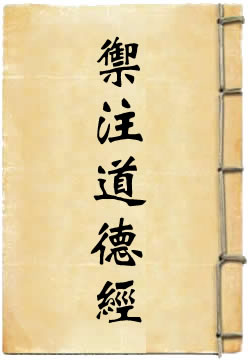 禦注道德經